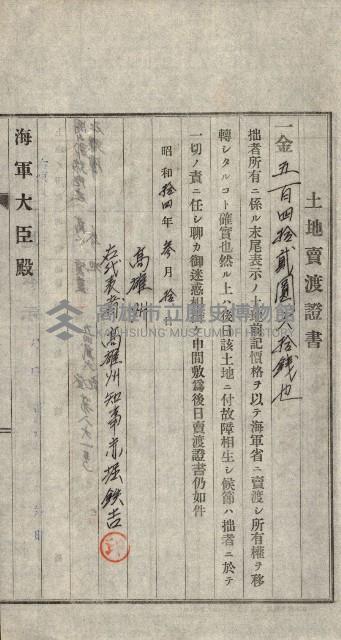 土地賣渡證書
一金五百四拾貳圓八拾錢也
拙者所有ニ係ル末尾表示ノ土地前記價格ヲ以テ海軍省ニ賣渡シ所有權ヲ移
轉シタルコト確實也然ル上ハ後日該土地ニ付故障相生シ候節ハ拙者ニ於テ
一切ノ責ニ任シ聊カ御迷惑相 申間敷爲後日賣渡證書仍如件
昭和拾四年參月拾 日
高雄州
右代表者高雄州知事赤堀鉄吉
海軍大臣殿
高雄市立歷史博物館
KAOHSIUNG MUSEUM OF HISTORY